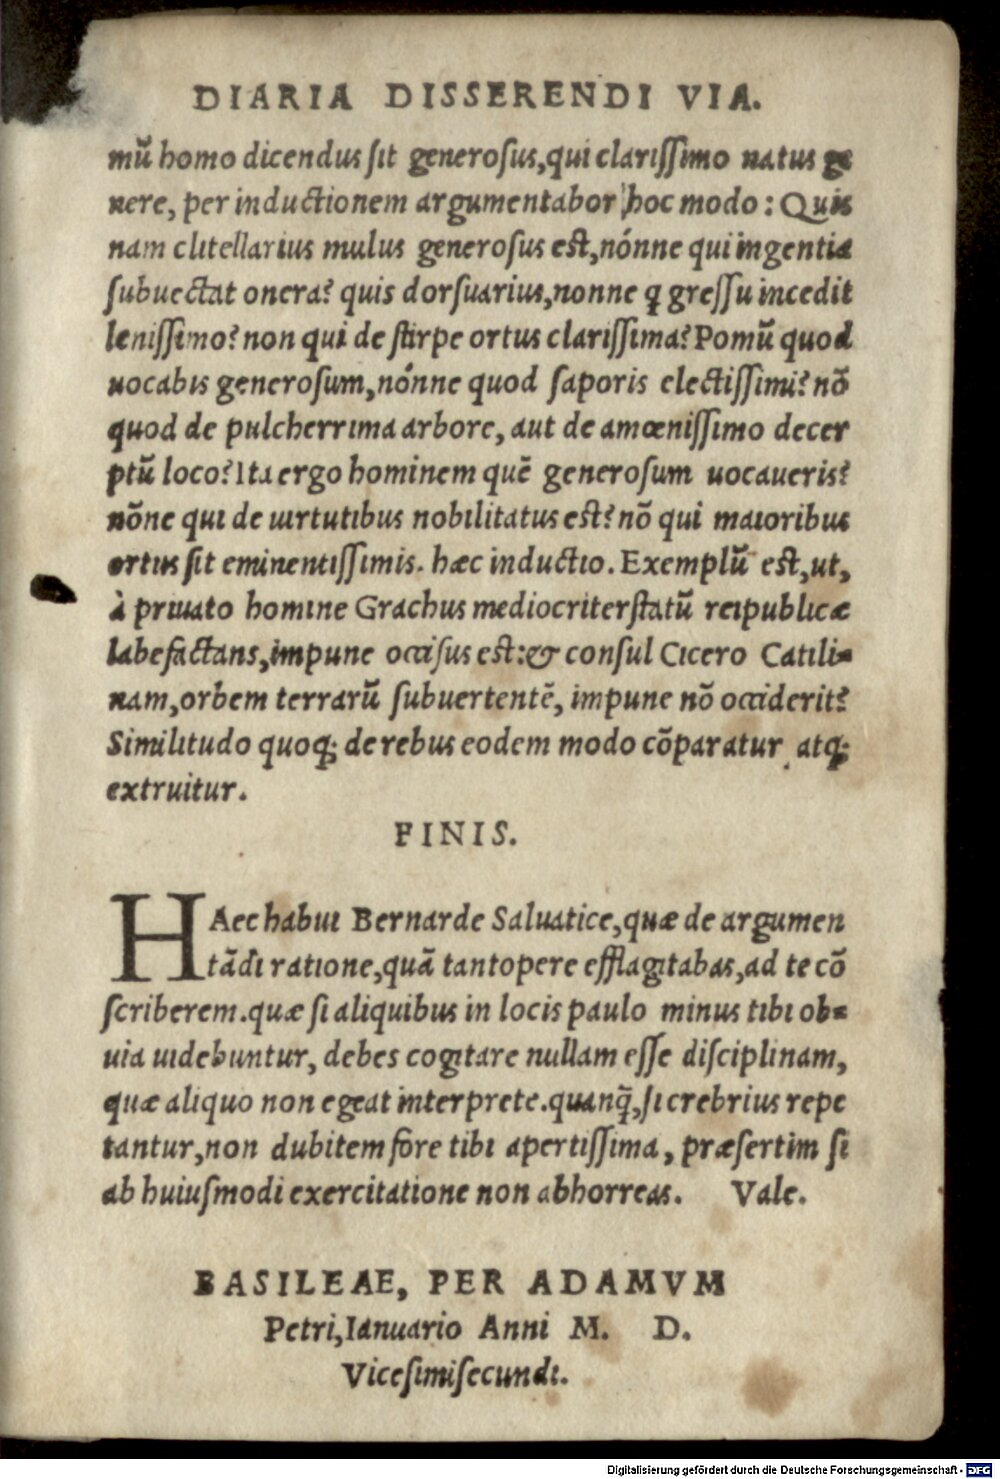 DIARIA DISSERENDI VIA.
mũ homo dicendus sit generosus, qui clarissimo natus ge
nere, per inductionem argumentabor hoc modo: Quis
nam clitellarius mulus generosus est, nónne qui ingentia
subuectat onera? quis dorsuarius, nonne q̃ gressu incedit
lenissimo? non qui de stirpe ortus clarissima? Pomũ quod
uocabis generosum, nónne quod saporis electissimi? nõ
quod de pulcherrima arbore, aut de amœnissimo decer
ptũ loco? Ita ergo hominem quẽ generosum uocaueris?
nõne qui de uirtutibus nobilitatus est? nõ qui maioribus
ortus sit eminentissimis. hæc inductio. Exemplũ est, ut,
à priuato homine Grachus mediocriter statũ reipublicæ
labefactans, impune occisus est: & consul Cicero Catili-
nam, orbem terrarũ subuertentẽ, impune nõ occiderit?
Similitudo quoq; de rebus eodem modo cõparatur atq;
extruitur.
FINIS.
HAec habui Bernarde Saluatice, quæ de argumen
tãdi ratione, quã tantopere efflagitabas, ad te cõ
scriberem. quæ si aliquibus in locis paulo minus tibi ob-
uia uidebuntur, debes cogitare nullam esse disciplinam,
quæ aliquo non egeat interprete. quanq̃, si crebrius repe
tantur, non dubitem fore tibi apertissima, præsertim si
ab huiusmodi exercitatione non abhorreas. Vale.
BASILEAE, PER ADAMVM
Petri, Ianuario Anni M. D.
Vicesimisecundi.
Digitalisierung gefördert durch die Deutsche Forschungsgemeinschaft - DFG